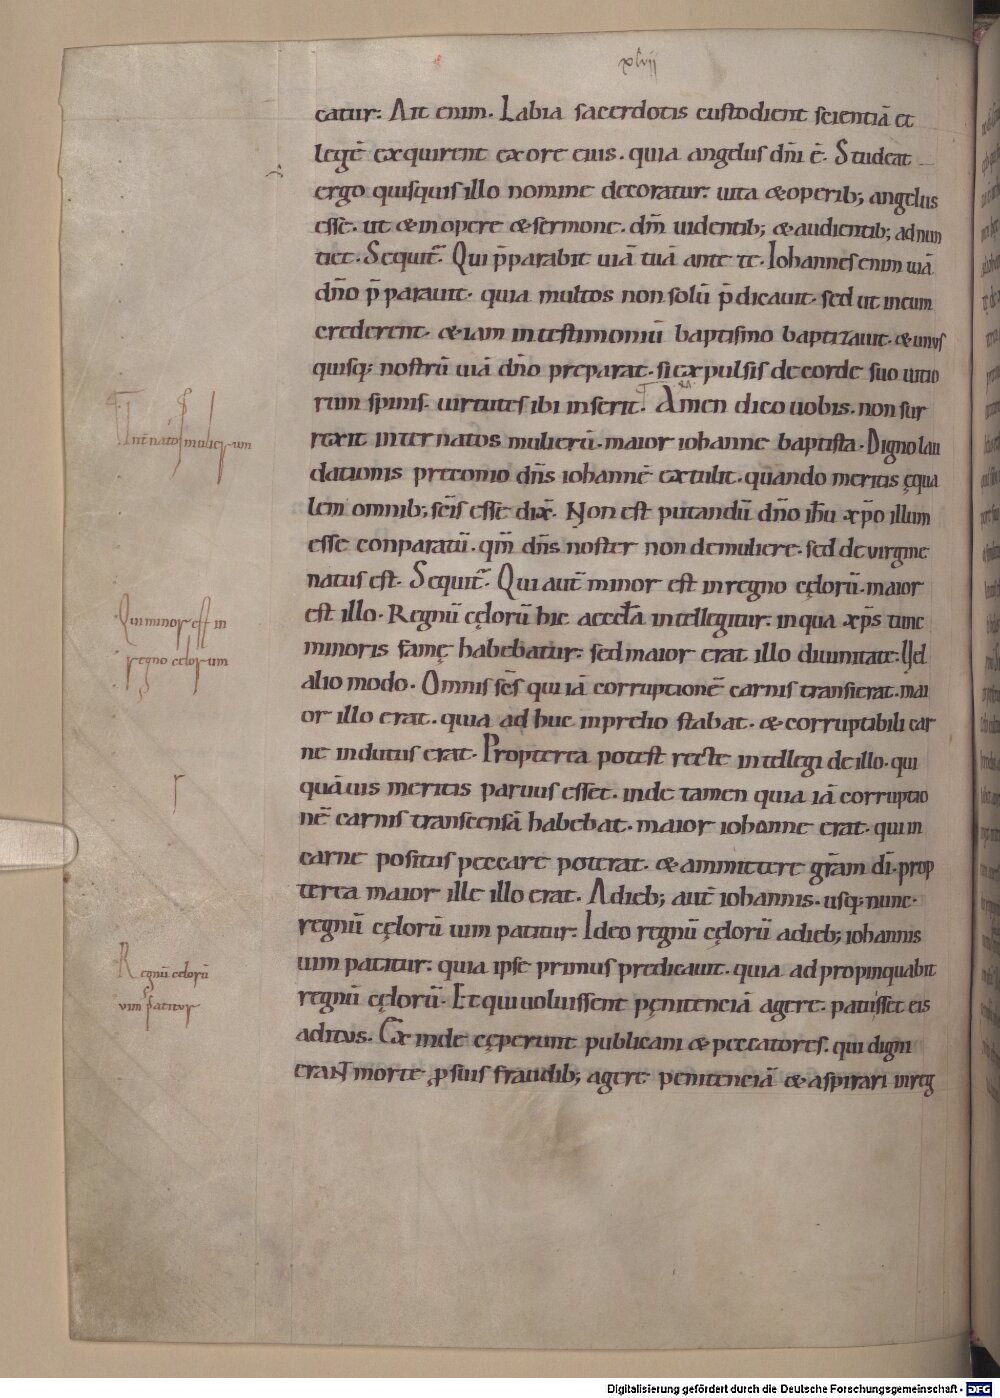 xlvii
catur: Ait enim. Labia sacerdotis custodient scientiā et
legē exquirent ex ore eius. quia angelus dn̄i ē. Studeat
ergo quisquis illo nomine decoratur: uita & operib; angelus
esse. ut & in opere & sermone. dm̄ uidentib; & audientib; adnun
tiet. Sequit̄. Qui p̄parabit uiā tuā ante te. Iohannes enim uiā
dn̄o p̄parauit. quia multos non solū p̄dicauit. sed ut in eum
crederent. & iam in testimoniū baptismo baptizauit. & unus
quisq; nostrū uiā dn̄o preparat. si expulsis de corde suo uitio
rum spinis. uirtutes ibi inserit. Amen dico uobis. non sur
rexit inter natos mulierū. maior iohanne baptista. Digno lau
dationis preconio dn̄s iohannē extulit. quando meritis ęqua
lem omnib; sc̄is esse dix̄. Non est putandū dn̄o ih̄u xp̄o illum
esse conparatū. qm̄ dn̄s noster non de muliere. sed de virgine
natus est. Sequit̄. Qui aut̄ minor est in regno cęlorū. maior
est illo. Regnū cęlorū hic acccl̄a intellegitur: in qua xp̄s tunc
minoris famę habebatur: sed maior erat illo diuinitate: Uel
alio modo. Omnis sc̄s qui iā corruptionē carnis transierat. mai
or illo erat. quia ad huc in prelio stabat. & corruptibili car
ne indutus erat. Propterea potest recte intellegi de illo. qui
quāuis meritis paruus esset. inde tamen quia iā corruptio
nē carnis transcensā habebat. maior iohanne erat. qui in
carne positus peccare poterat. & ammittere gr̄am dī. prop
terea maior ille illo erat. A dieb; aut̄ iohannis. usq; nunc.
regnū cęlorū uim patitur: Ideo regnū cęlorū a dieb; iohannis
uim patitur: quia ipse primus predicauit. quia ad propinquabit
regnū cęlorū. Et qui uoluissent pęnitenciā agere. patuisset eis
aditus. Ex inde cęperunt publicani & peccatores. qui digni
erant morte p suis fraudib; agere penitenciā & aspirari in reg
Int̄ natos mulierum
Qui minor est in
regno celorum
r
Regnū celorū
vim patitur
Digitalisierung gefördert durch die Deutsche Forschungsgemeinschaft - DFG